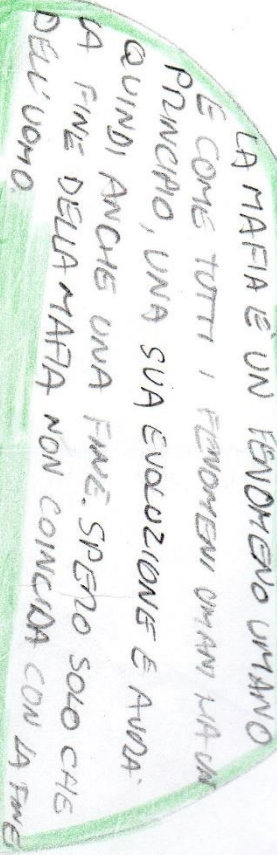 LA MAFIA È UN FENOMENO UMANO
E COME TUTTI I FENOMENI UMANI HA UN
PRINCIPIO, UNA SUA EVOLUZIONE E AVRA'
QUINDI ANCHE UNA FINE. SPERO SOLO CHE
LA FINE DELLA MAFIA NON COINCIDA CON LA FINE
DELL'UOMO